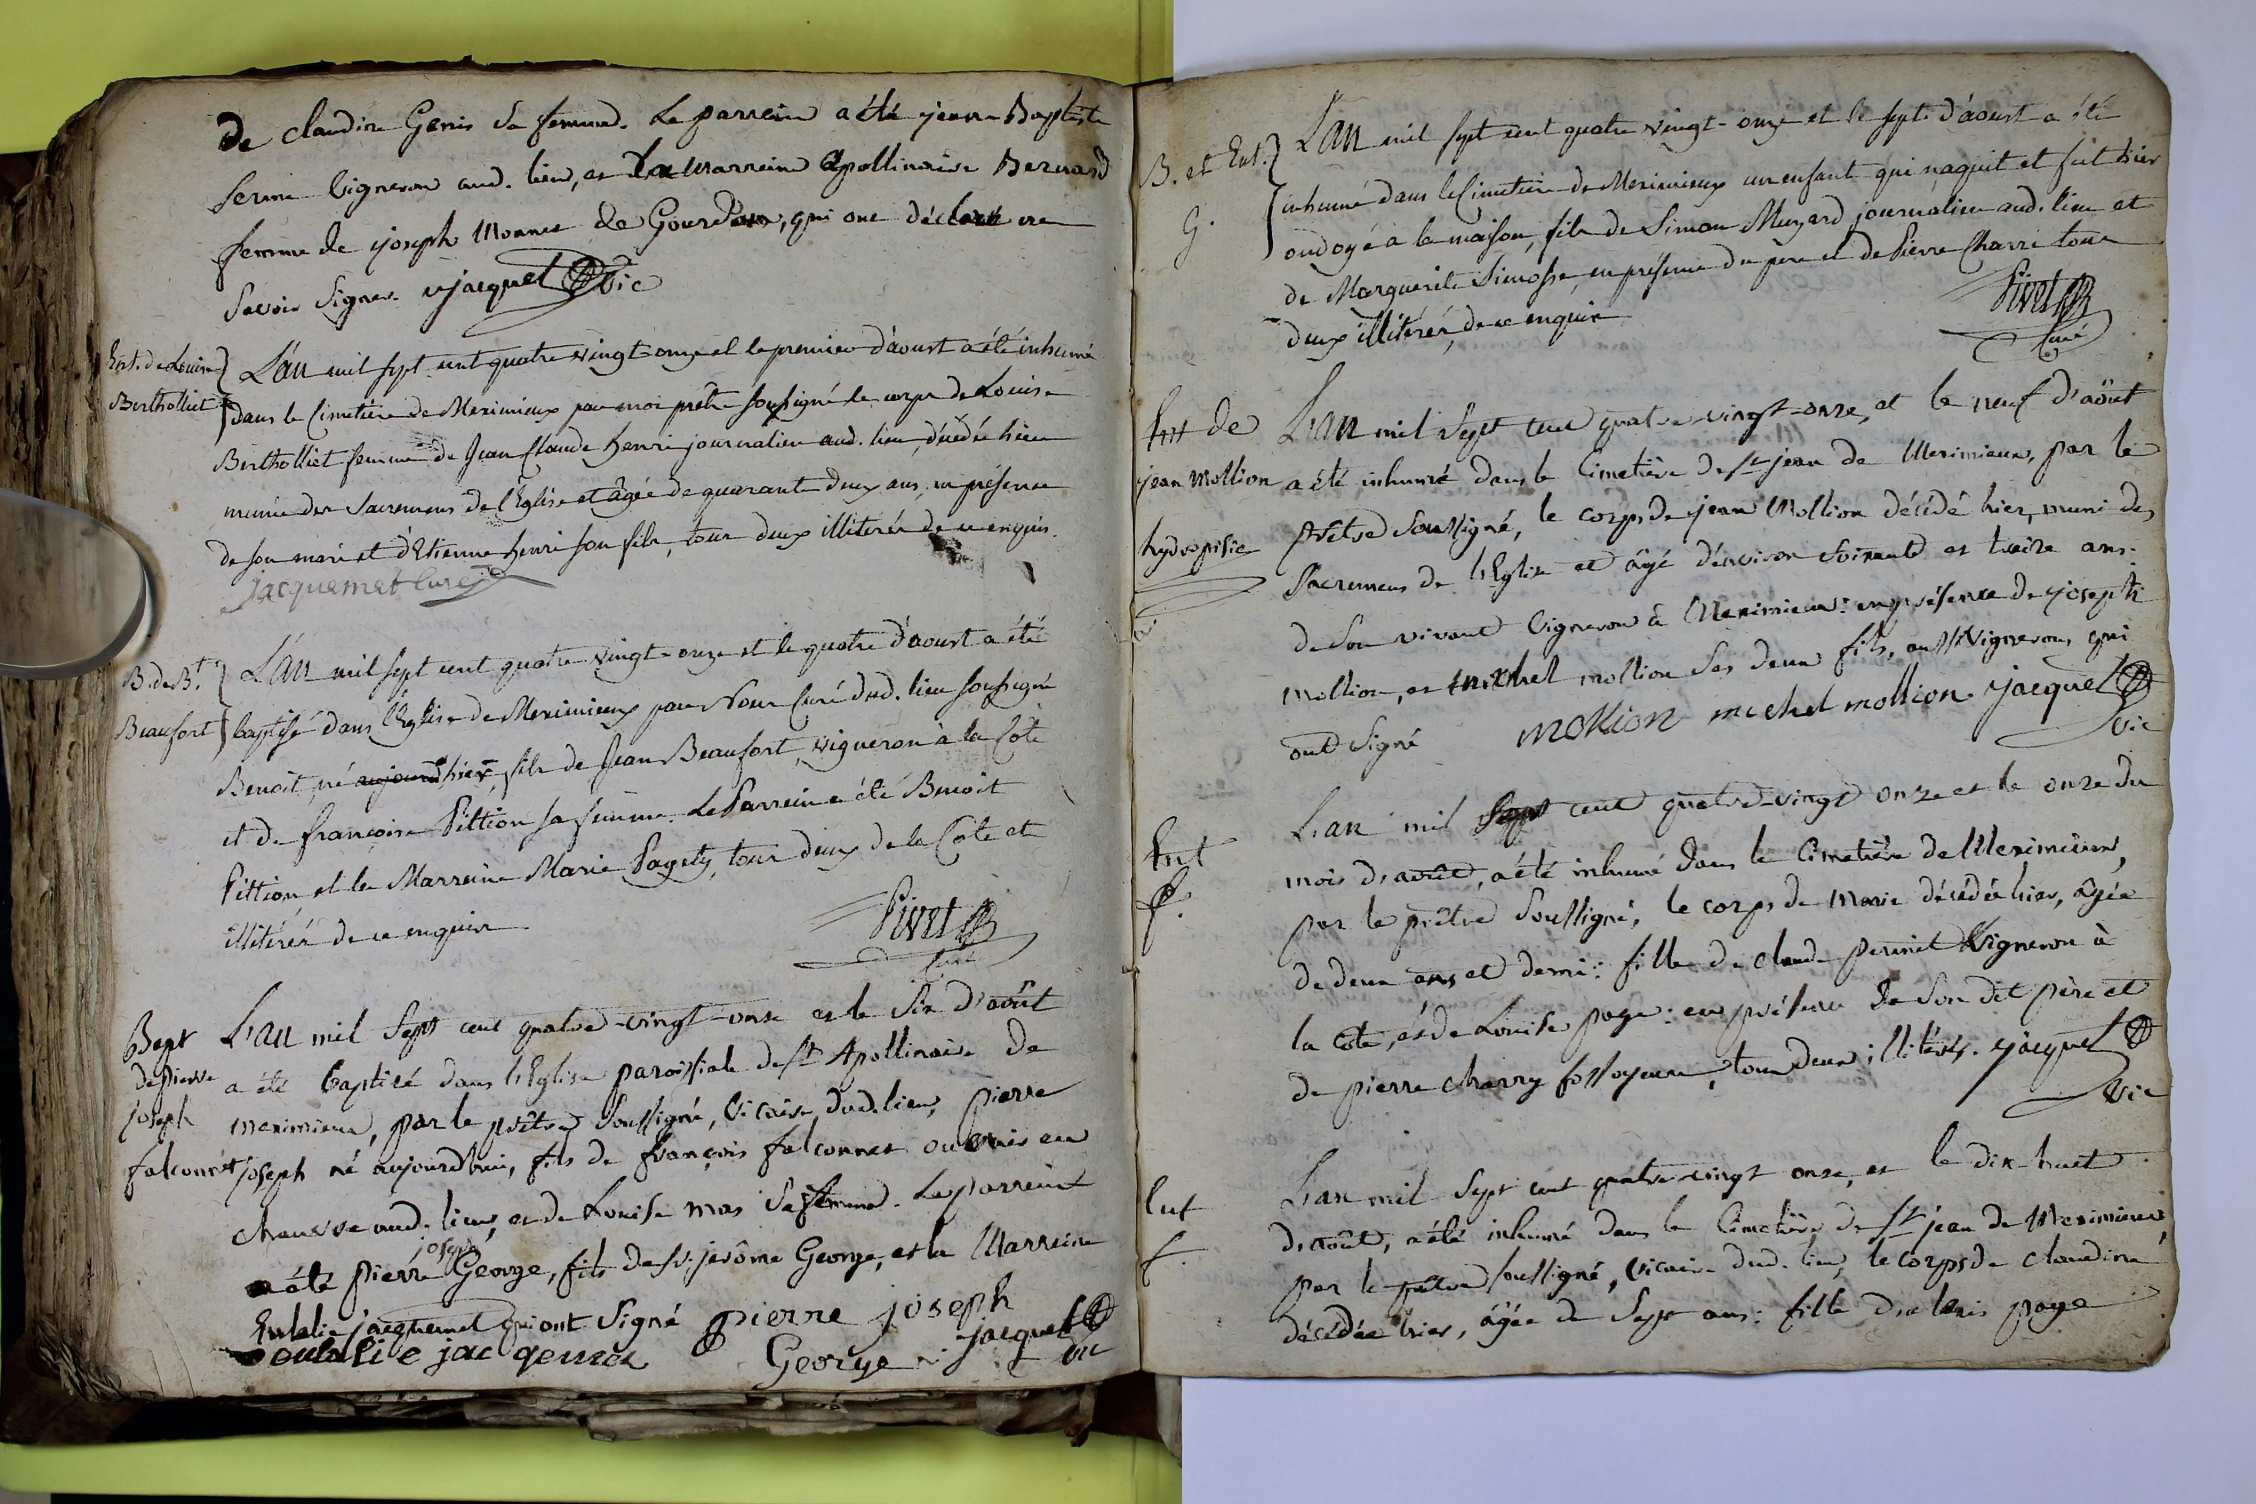 de claudine Genis sa femme. Le parrein a été jean-Baptiste
Serme Vigneron aud. lieu, et la Marreine Apollinaire Bernard
femme de joseph Monnet de Gourdan, qui ont déclaré ne
savoir signer. jacquet Vic
Ent. de Louise
Bertholliet
L'an mil sept cent quatre vingt-onze et le premier d'aoust a été inhumé
dans le Cimetière de Meximieux par moi prêtre soussigné le corps de Louise
Bertholliet femme de Jean Claude henri journalier aud. lieu, décédée hier
munie des Sacremens de l'Eglise et âgée de quarante deux ans, en présence
de son mari et d'Etienne henri son fils, tous deux illitérés de ce enquis.
jacquemet curé
B. de B.t
Beaufort
L'an mil sept cent quatre vingt-onze et le quatre d'aoust a été
baptisé dans l'Eglise de Meximieux par Nous Curé dud. lieu soussigné
Benoit, né aujourd'hier, fils de Jean Beaufort, vigneron à la Côte
et de françoise Pittion sa femme. Le Parrein a été Benoit
Pittion et la Marreine Marie Pagety, tous deux de la Côte et
illitérés de ce enquis
Pivet
curé
Bapt
de pierre
joseph
falconnet
L'an mil sept cent quatre-vingt-onze et le six d'août
a été baptisé dans l'Eglise paroissiale de St Apollinaire de
meximieux, par le prêtre soussigné, Vicaire dud. lieu, pierre
joseph né aujourdhui, fils de françois falconnet ouvrier en
chanvre aud. lieu, et de Louise mas sa femme. Le parrein
a été pierre joseph George, fils de Sr. jerôme George, et la Marreine
Eulalie jacquemet qui ont signé pierre joseph
oulalie jacqemet George jacquet
Vic
B. et Ent.
G.
L'an mil sept cent quatre vingt-onze et le sept d'aoust a été
inhumé dans le Cimetière de Meximieux un enfant qui naquit et fut hier
ondoyé à la maison, fils de Simon Muzard journalier aud. lieu et
de Marguerite Simosse, en présence du père et de Pierre Charri tous
deux illitérés, de ce enquis
Pivet
curé
Ent de
jean mollion
hydropisie
L'an mil sept cent quatre-vingt-onze, et le neuf d'août
a été inhumé dans le Cimetière de St jean de Meximieux, par le
prêtre soussigné, le corps de jean Mollion décédé hier, muni des
sacremens de l'Eglise et âgé d'environ soixante et treize ans:
de son vivant Vigneron à Meximieux: en présence de joseph
mollion, et michel mollion ses deux fils, aussi Vignerons, qui
ont signé mollion michel mollion. jacquet
Vic
Ent
f.
L'an mil sept cent quatre-vingt onze et le onze du
mois d'août, a été inhumé dans le Cimetière de Meximieux,
par le prêtre soussigné, le corps de Marie décédée hier, âgée
de deux ans et demi: fille de claude perinet Vigneron à
la Côte, et de Louise page: en présence de son dit père et
de pierre charry fossoyeur, tous deux illitérés. jacquet
Vic
Ent
f.
L'an mil sept cent quatre-vingt onze, et le dix-huit
d'août, a été inhumé dans le Cimetière de St jean de Meximieux,
par le prêtre soussigné, Vicaire dud. lieu, le corps de claudine
décédée hier, âgée de sept ans: fille d'alexis page